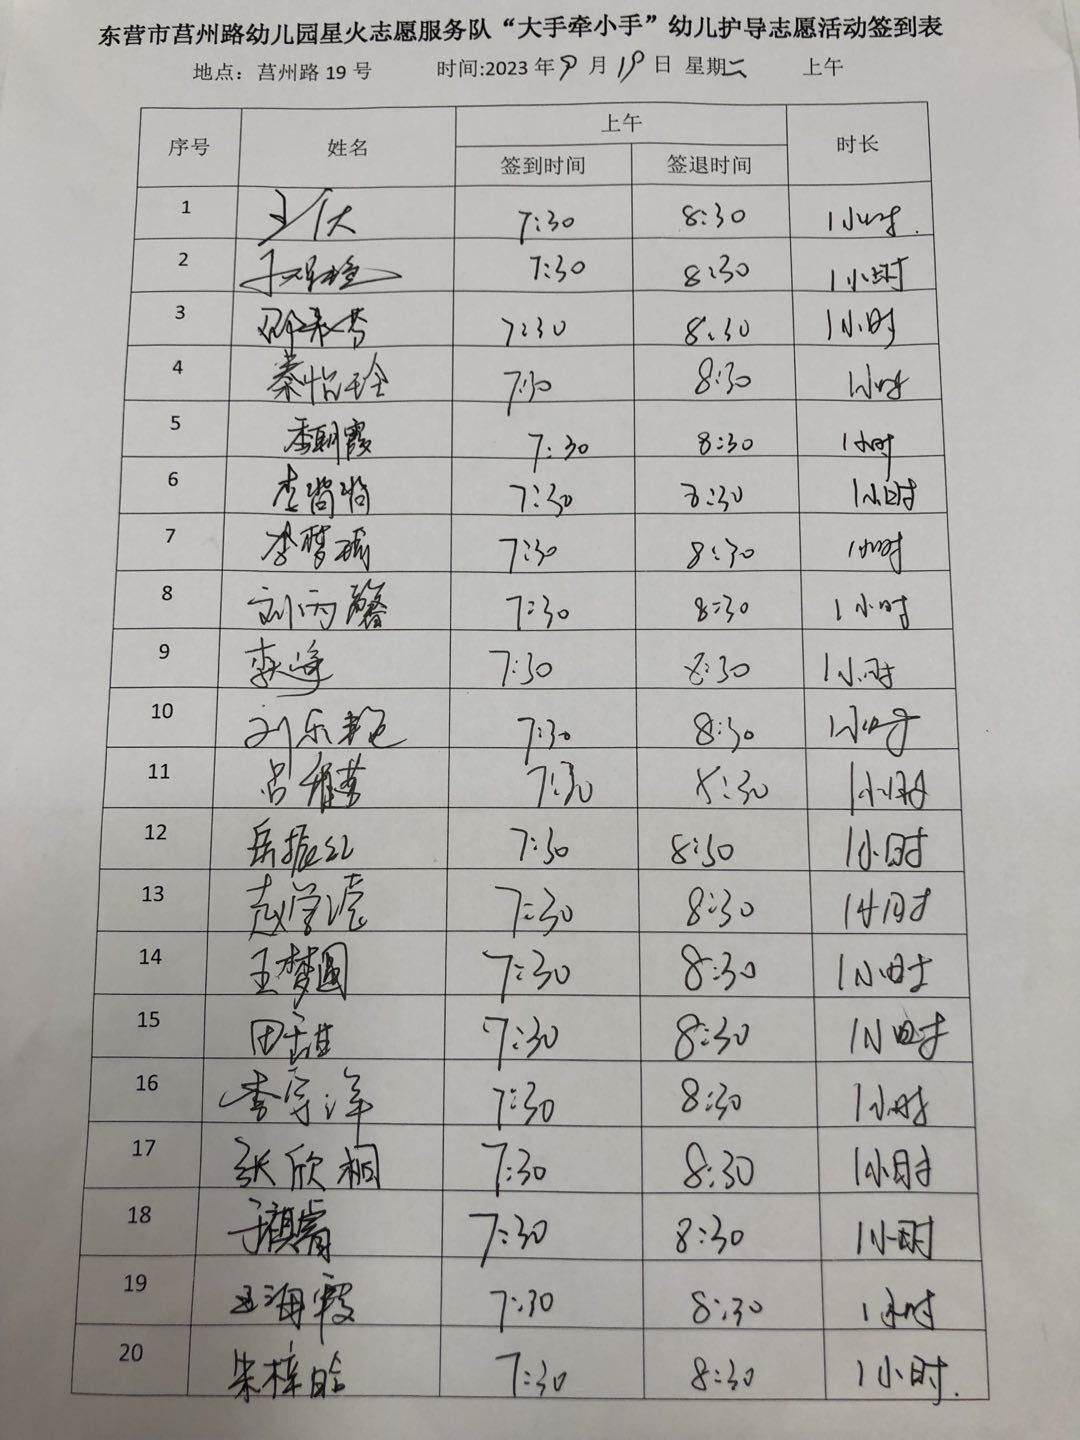 东营市莒州路幼儿园星火志愿服务队“大手牵小手”幼儿护导志愿活动签到表
地点：莒州路 19 号 时间:2023 年 9 月 19 日 星期二 上午
序号 姓名 上午 时长
签到时间 签退时间
1 7:30 8:30 1小时.
2 7:30 8:30 1小时
3 7:30 8:30 1小时
4 秦怡玲 7:30 8:30 1小时
5 季朝霞 7:30 8:30 1小时
6 李 7:30 8:30 1小时
7 李梦瑶 7:30 8:30 1小时
8 刘丙馨 7:30 8:30 1小时
9 7:30 8:30 1小时
10 刘乐艳 7:30 8:30 1小时
11 吕 7:30 8:30 1小时
12 岳振红 7:30 8:30 1小时
13 赵学 7:30 8:30 1小时
14 王梦圆 7:30 8:30 1小时
15 田 7:30 8:30 1小时
16 李宇洋 7:30 8:30 1小时
17 张欣桐 7:30 8:30 1小时
18 于祺睿 7:30 8:30 1小时
19 王海霞 7:30 8:30 1小时
20 朱梓晗 7:30 8:30 1小时.